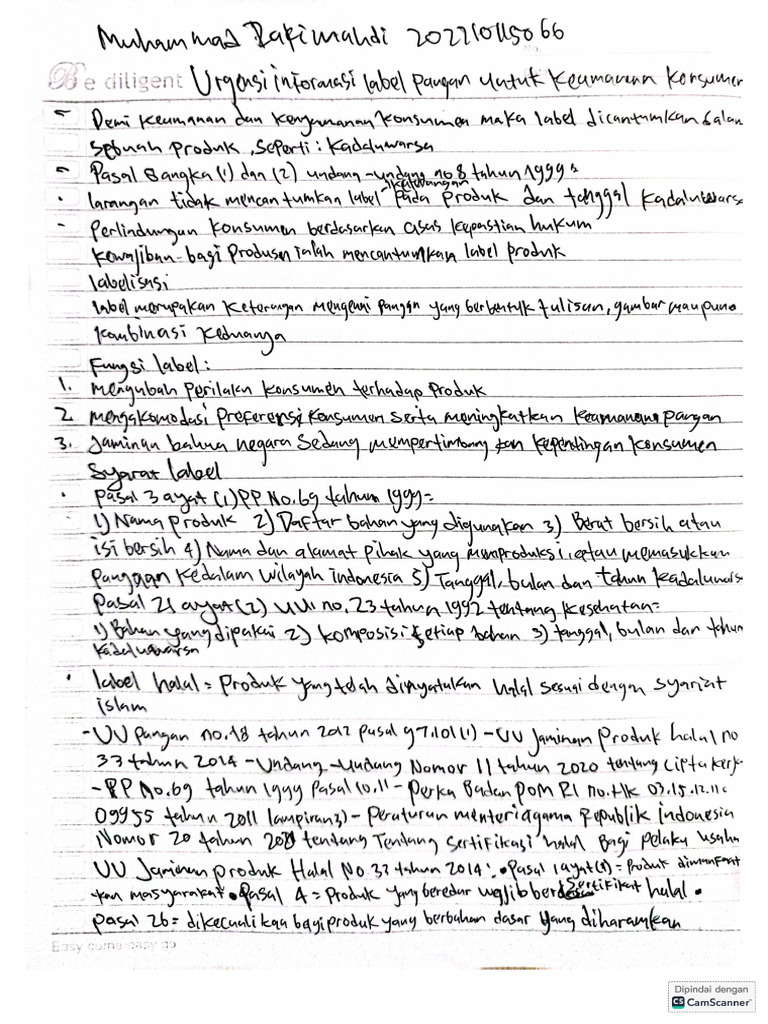 Muhammad Rafi mahdi 202210115066
No.
Be diligent Urgensi informasi label pangan untuk keamanan konsumen
- Demi keamanan dan kenyamanan konsumen maka label dicantumkan dalam
sebuah produk, seperti : kadaluwarsa
- Pasal 8 angka (1) dan (2) undang-undang no 8 tahun 1999 :
• larangan tidak mencantumkan label keterangan pada produk dan tanggal kadaluwarsa
- Perlindungan konsumen berdasarkan asas kepastian hukum
kewajiban bagi produsen ialah mencantumkan label produk
labelisasi
label merupakan keterangan mengenai pangan yang berbentuk tulisan, gambar maupun
kombinasi keduanya
Fungsi label :
1. mengubah perilaku konsumen terhadap produk
2. mengakomodasi preferensi konsumen serta meningkatkan keamanan pangan
3. Jaminan bahwa negara sedang mempertimbangkan kepentingan konsumen
Syarat label
• Pasal 3 ayat (1) PP No.69 tahun 1999 =
1) Nama produk 2) Daftar bahan yang digunakan 3) Berat bersih atau
isi bersih 4) Nama dan alamat pihak yang memproduksi atau memasukkan
pangan kedalam wilayah indonesia 5) Tanggal, bulan dan tahun kadaluwarsa
Pasal 21 ayat (2) UU no.23 tahun 1992 tentang kesehatan =
1) Bahan yang dipakai 2) komposisi setiap bahan 3) tanggal, bulan dan tahun
kadaluwarsa
• label halal = Produk yang telah dinyatakan halal sesuai dengan syariat
islam
- UU pangan no.18 tahun 2012 pasal 97.101(1) - UU Jaminan produk halal no
33 tahun 2014 - Undang-Undang Nomor 11 tahun 2020 tentang cipta kerja
- PP No.69 tahun 1999 Pasal 10.11 - Perka Badan POM RI no.HK 03.1.5.12.11.
09955 tahun 2011 lampiran 3) - Peraturan menteri agama Republik Indonesia
Nomor 20 tahun 2021 tentang Tentang Sertifikasi halal Bagi Pelaku usaha
UU Jaminan produk Halal No 33 tahun 2014 : • Pasal 1 ayat (1) = Produk dimanfaat
kan masyarakat • Pasal 4 = Produk yang beredar wajib Sertifikat halal •
Pasal 26 = dikecualikan bagi produk yang berbahan dasar yang diharamkan
Easy come easy go
Dipindai dengan
CS CamScanner